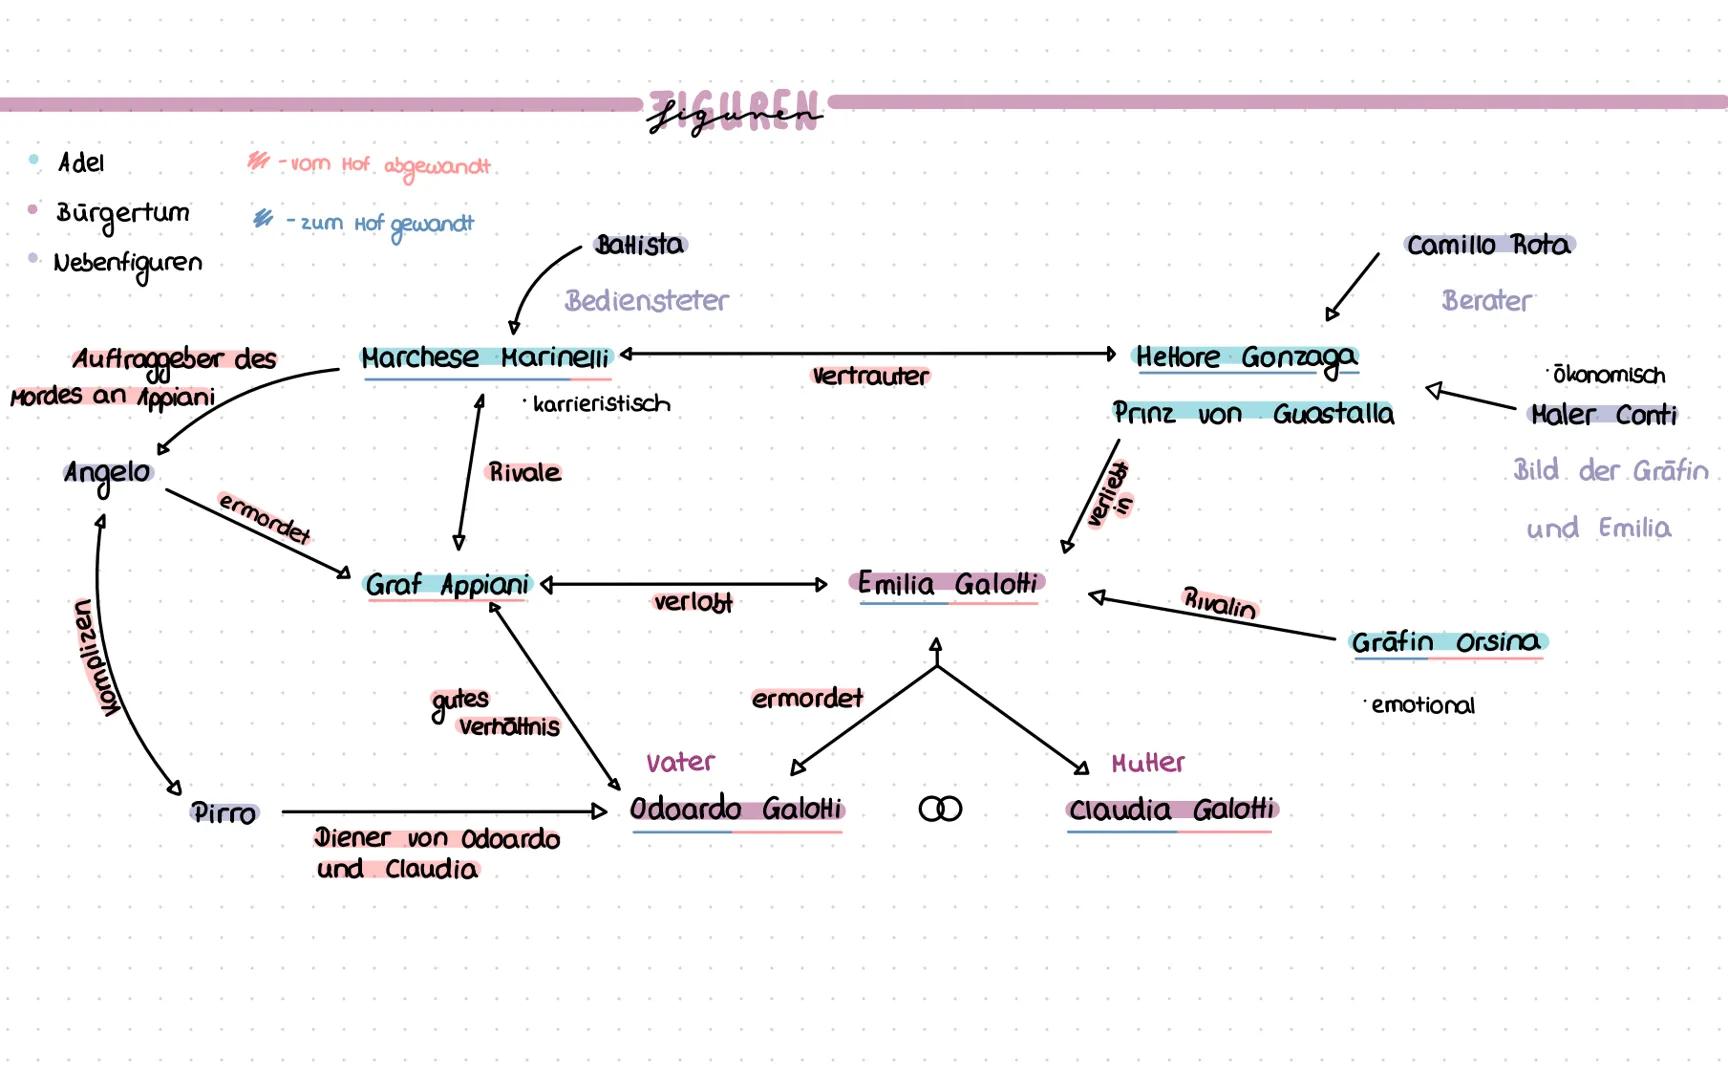 FIGUREN
figuren
Adel
- vom Hof abgewandt
Bürgertum
- zum Hof gewandt
Nebenfiguren
Battista
Bediensteter
Camillo Rota
Berater
Auftraggeber des
Mordes an Appiani
Marchese Marinelli
· karrieristisch
Vertrauter
Hettore Gonzaga
Prinz von Guastalla
· ökonomisch
Maler Conti
Bild der Gräfin
und Emilia
Angelo
ermordet
Rivale
verliebt
in
Graf Appiani
verlobt
Emilia Galotti
Rivalin
Gräfin Orsina
· emotional
Komplizen
gutes
Verhältnis
ermordet
Vater
Mutter
Pirro
Diener von Odoardo
und Claudia
Odoardo Galotti
Claudia Galotti